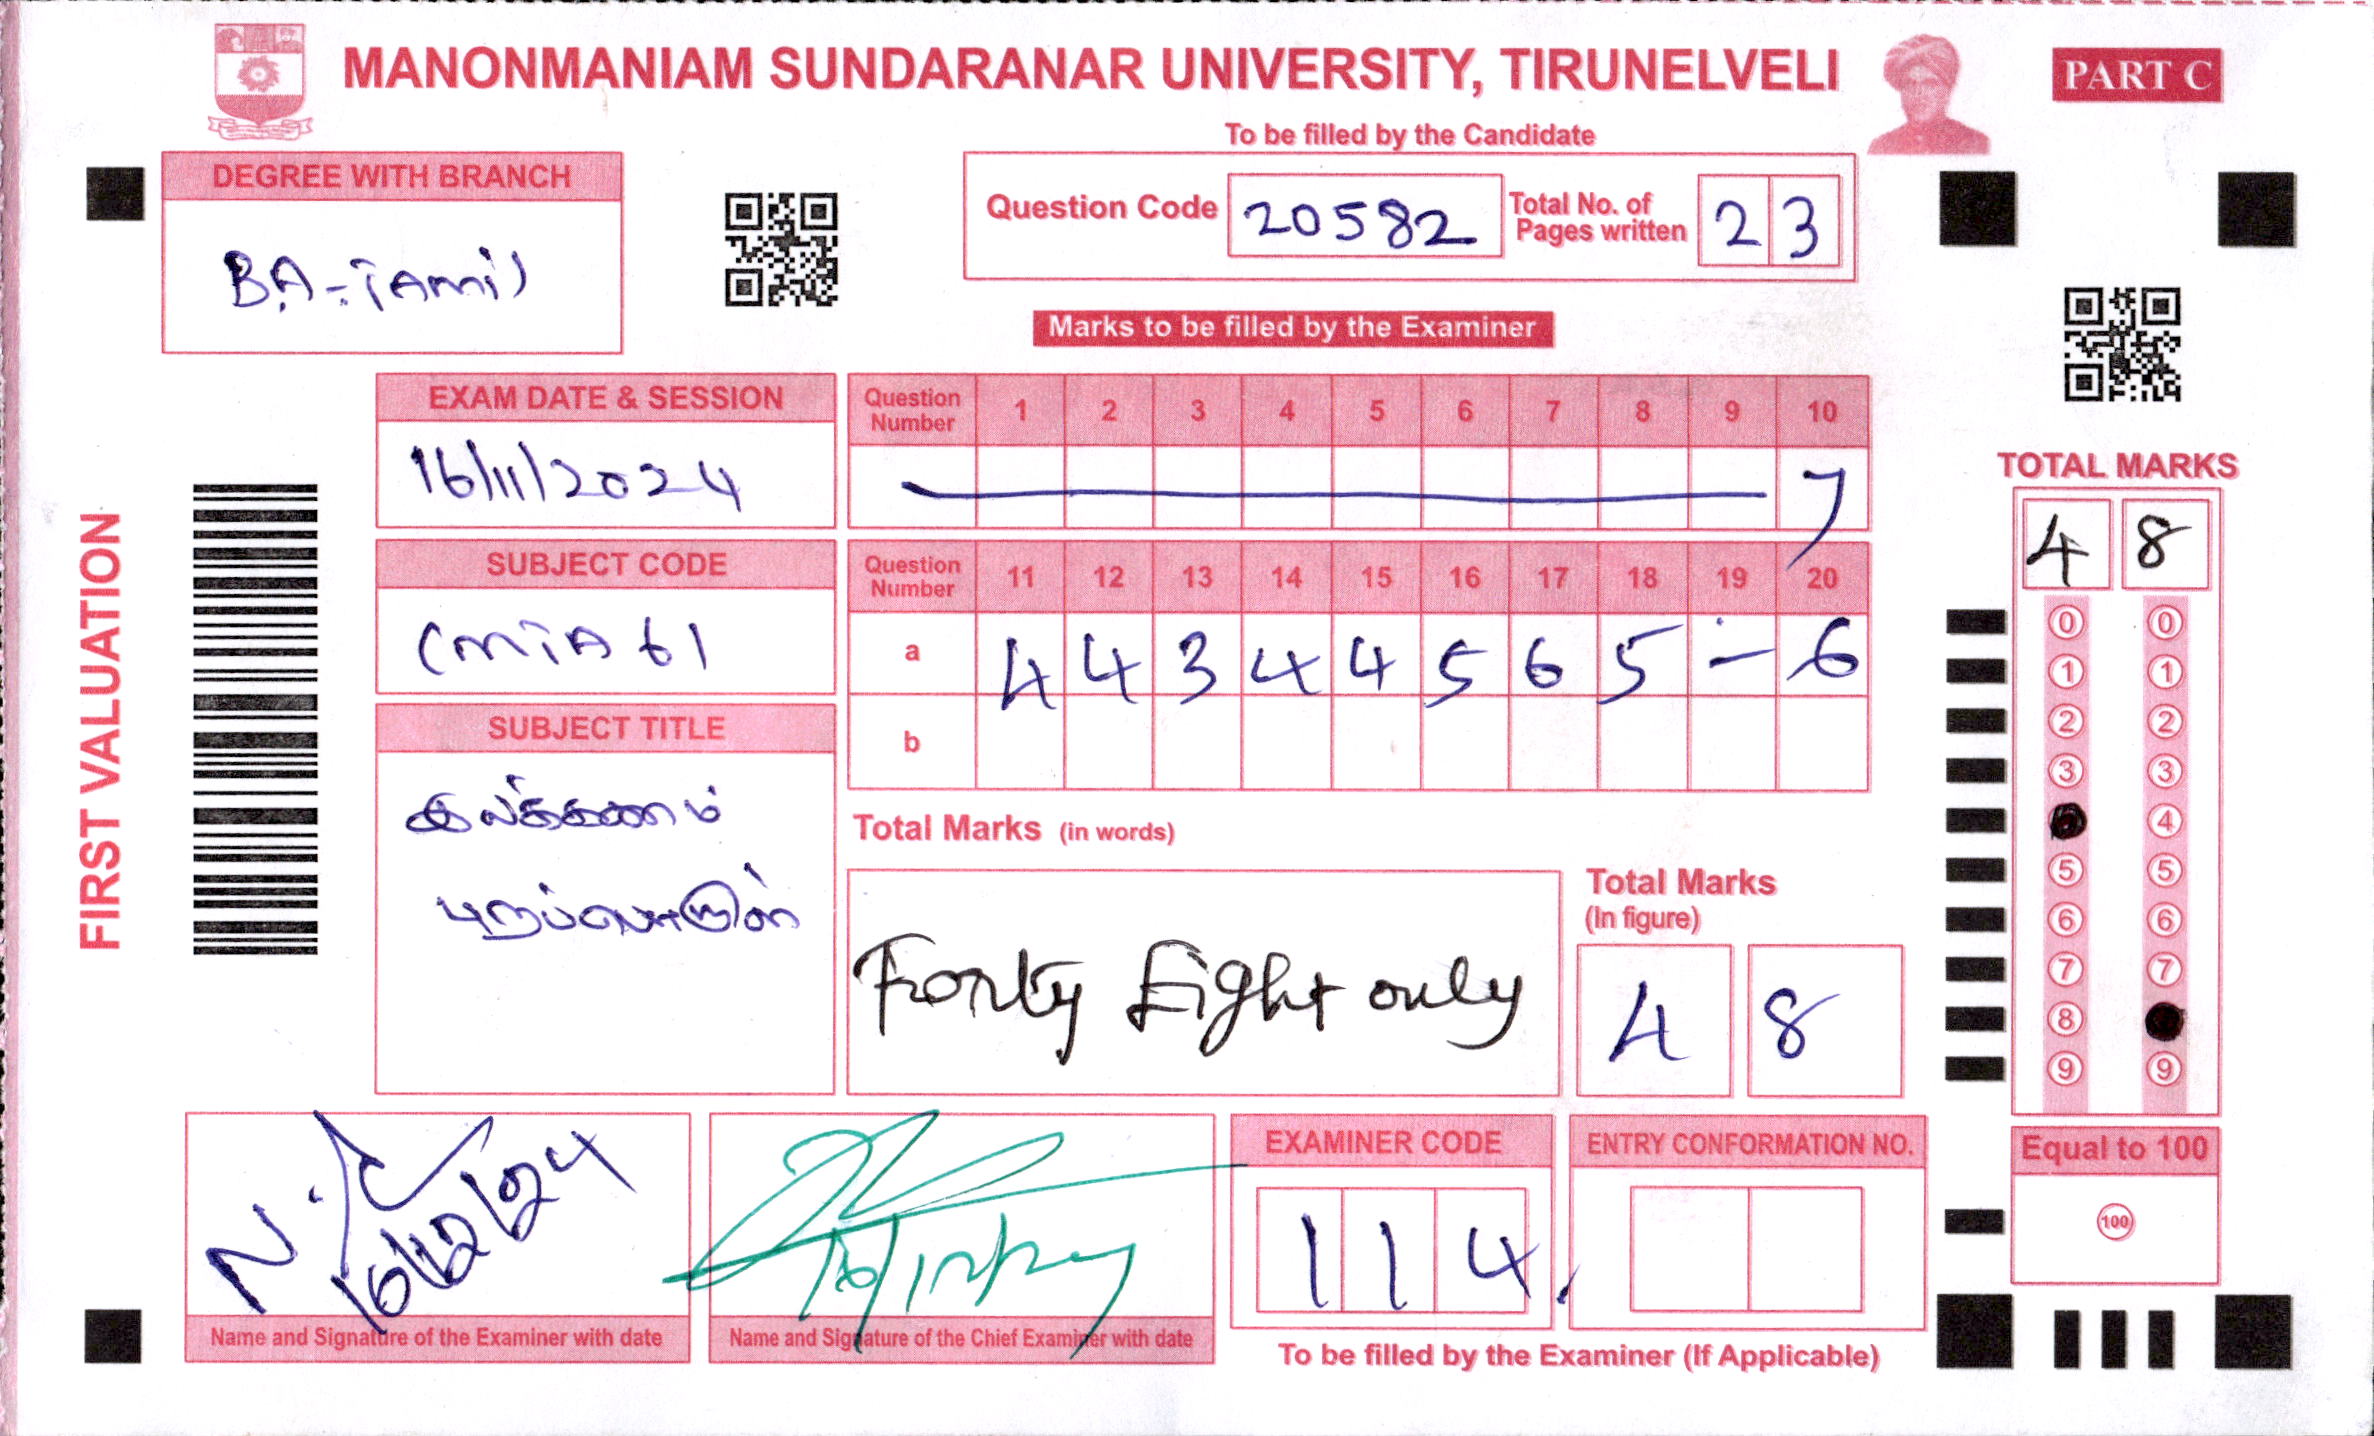 MANONMANIAM SUNDARANAR UNIVERSITY, TIRUNELVELI
PART C
To be filled by the Candidate
DEGREE WITH BRANCH
BA-TAmil
Question Code 20582 Total No. of Pages written 23
Marks to be filled by the Examiner
EXAM DATE & SESSION
16/11/2024
Question Number 1 2 3 4 5 6 7 8 9 10
7
SUBJECT CODE
CMTA61
Question Number 11 12 13 14 15 16 17 18 19 20
a 4 4 3 4 4 5 6 5 - 6
b
SUBJECT TITLE
இலக்கணம்
புறப்பொருள்
Total Marks (in words)
Fourty Eight only
Total Marks
(In figure)
4 8
FIRST VALUATION
TOTAL MARKS
4 8
0 0
1 1
2 2
3 3
4
5 5
6 6
7 7
8
9 9
Equal to 100
100
16/12/24
Name and Signature of the Examiner with date
Name and Signature of the Chief Examiner with date
EXAMINER CODE
114
ENTRY CONFORMATION NO.
To be filled by the Examiner (If Applicable)